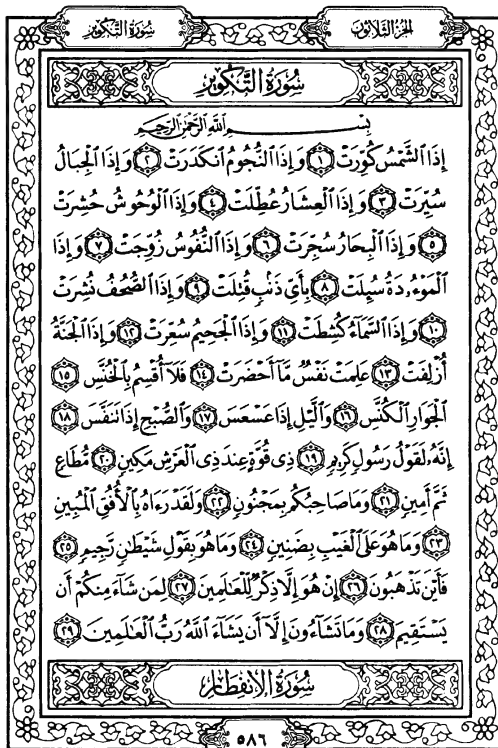 سُورَةُ التَّكْوِيرِ
الجُزْءُ الثَّلَاثُونَ
سُورَةُ التَّكْوِيرِ
بِسْمِ ٱللَّهِ ٱلرَّحْمَٰنِ ٱلرَّحِيمِ
إِذَا ٱلشَّمْسُ كُوِّرَتْ ١ وَإِذَا ٱلنُّجُومُ ٱنكَدَرَتْ ٢ وَإِذَا ٱلْجِبَالُ
سُيِّرَتْ ٣ وَإِذَا ٱلْعِشَارُ عُطِّلَتْ ٤ وَإِذَا ٱلْوُحُوشُ حُشِرَتْ
٥ وَإِذَا ٱلْبِحَارُ سُجِّرَتْ ٦ وَإِذَا ٱلنُّفُوسُ زُوِّجَتْ ٧ وَإِذَا
ٱلْمَوْءُۥدَةُ سُئِلَتْ ٨ بِأَىِّ ذَنۢبٍ قُتِلَتْ ٩ وَإِذَا ٱلصُّحُفُ نُشِرَتْ
١٠ وَإِذَا ٱلسَّمَآءُ كُشِطَتْ ١١ وَإِذَا ٱلْجَحِيمُ سُعِّرَتْ ١٢ وَإِذَا ٱلْجَنَّةُ
أُزْلِفَتْ ١٣ عَلِمَتْ نَفْسٌ مَّآ أَحْضَرَتْ ١٤ فَلَآ أُقْسِمُ بِٱلْخُنَّسِ ١٥
ٱلْجَوَارِ ٱلْكُنَّسِ ١٦ وَٱلَّيْلِ إِذَا عَسْعَسَ ١٧ وَٱلصُّبْحِ إِذَا تَنَفَّسَ ١٨
إِنَّهُۥ لَقَوْلُ رَسُولٍ كَرِيمٍ ١٩ ذِى قُوَّةٍ عِندَ ذِى ٱلْعَرْشِ مَكِينٍ ٢٠ مُّطَاعٍ
ثَمَّ أَمِينٍ ٢١ وَمَا صَاحِبُكُم بِمَجْنُونٍ ٢٢ وَلَقَدْ رَءَاهُ بِٱلْأُفُقِ ٱلْمُبِينِ
٢٣ وَمَا هُوَ عَلَى ٱلْغَيْبِ بِضَنِينٍ ٢٤ وَمَا هُوَ بِقَوْلِ شَيْطَٰنٍ رَّجِيمٍ ٢٥
فَأَيْنَ تَذْهَبُونَ ٢٦ إِنْ هُوَ إِلَّا ذِكْرٌ لِّلْعَٰلَمِينَ ٢٧ لِمَن شَآءَ مِنكُمْ أَن
يَسْتَقِيمَ ٢٨ وَمَا تَشَآءُونَ إِلَّآ أَن يَشَآءَ ٱللَّهُ رَبُّ ٱلْعَٰلَمِينَ ٢٩
سُورَةُ الِانفِطَارِ
٥٨٦